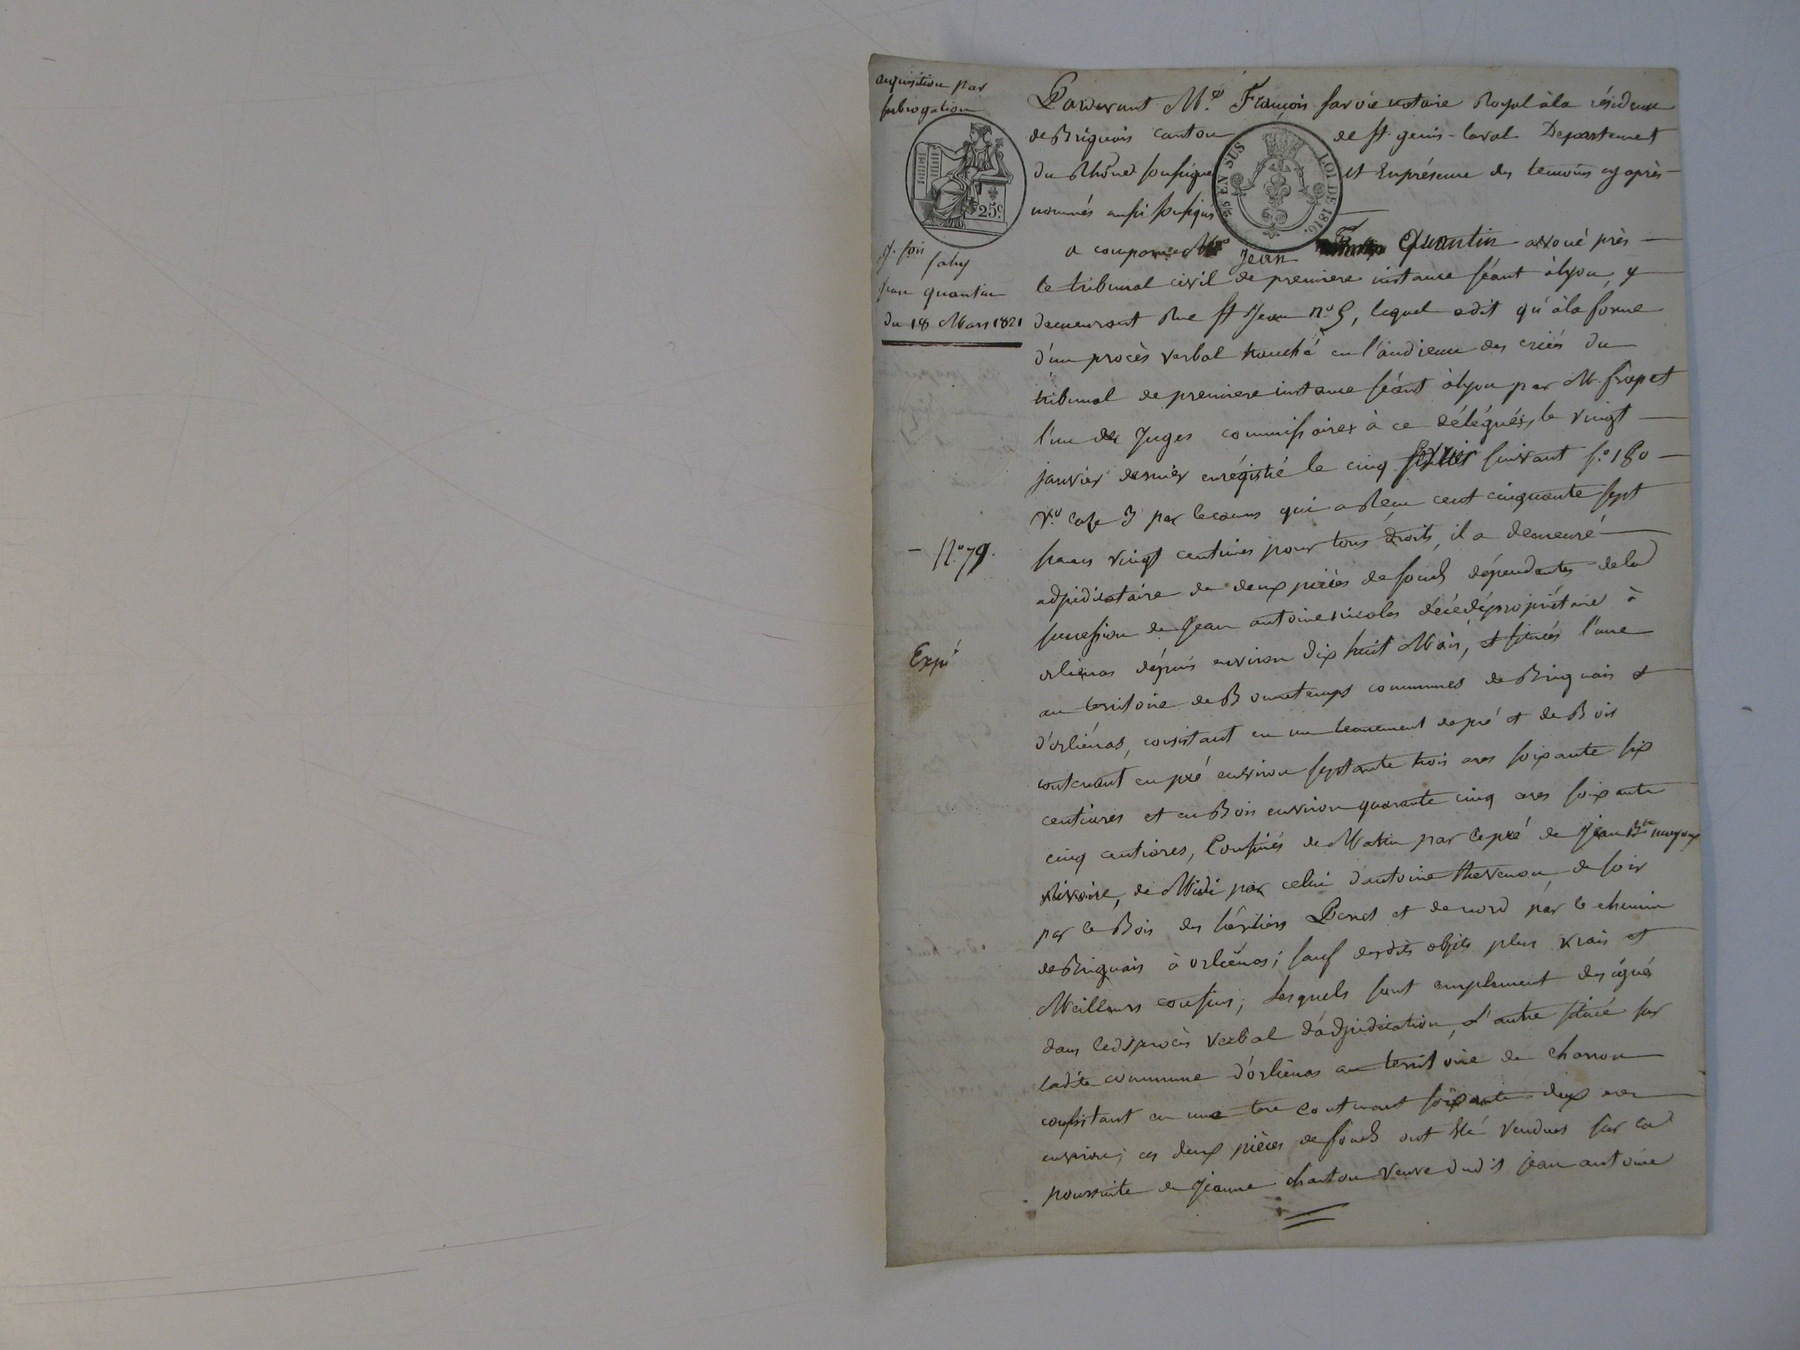 acquisition par
subrogation
25c
f. foi
faby
jean quantin
du 18 Mars 1821
- N.o 79.
Expé
Pardevant M.e François favoie notaire Royal à la résidence
de Brignais canton de st. genis-laval Departement
du Rhône soussigné et En présence des temoins cy après
nommés aussi soussignés
5/6 EN SUS LOI DE 1816.
a comparu M.e Jean Quantin avoué près
le tribunal civil de premiere instance séant à lyon, y
demeurant Rue st Jean n.o 5, lequel a dit qu'à la forme
d'un procès verbal tranché en l'audience des criées du
tribunal de premiere instance séant à lyon par M. frapet
l'un des Juges commissaires à ce délégués, le vingt
janvier dernier enrégistré le cinq février suivant f.o 180
v.o case 3 par lecamus qui a Reçu cent cinquante sept
francs vingt centimes pour tous droits, il a demeuré
adjudicataire de deux pièces de fonds dépendantes de la
succession de Jean antoine nicolas décédé propriétaire à
orliénas dépuis environ dix huit Mois, et situées l'une
au territoire de Bonnetemps communes de Brignais et
d'orliénas, consistant en un tenement de pré et de Bois
contenant en pré environ septante trois ares soixante six
centiares et en Bois environ quarante cinq ares soixante
cinq centiares, Confinés de Matin par le pré de Jean Bte
rivoire, de Midi par celui d'antoine thevenon, de soir
par le Bois des héritiers et de nord par le chemin
de Brignais à orliénas; sauf desdits objets plus vrais et
Meilleurs confins, lesquels sont amplement désignés
dans ledt procès verbal d'adjudication, L'autre située sur
ladite commune d'orliénas au territoire de charron
consistant en une terre contenant soixante dix ares
environ; ces deux pièces de fonds ont été vendues sur la
poursuite de Jeanne charton veuve dudit jean antoine